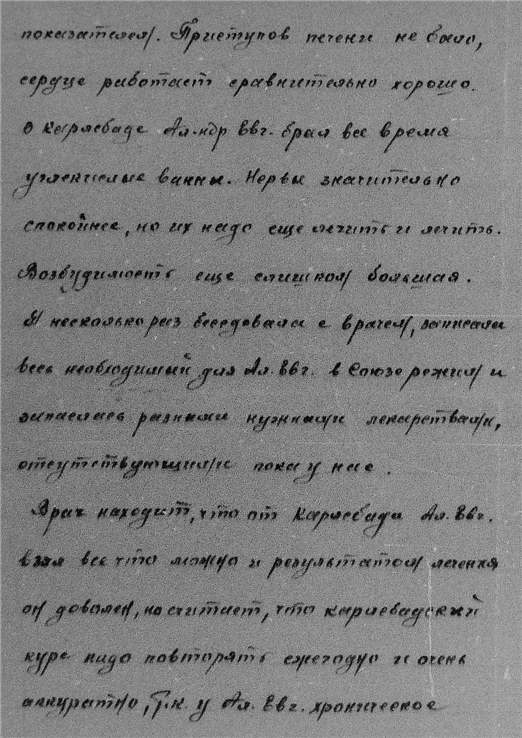 показателем. Приступов печени не было,
сердце работает сравнительно хорошо.
В Карлсбаде Ал-ндр Евг. брал все время
углекислые ванны. Нервы значительно
спокойнее, но их надо еще лечить и лечить.
Возбудимость еще слишком большая.
Я несколько раз беседовала с врачем, записала
весь необходимый для Ал. Евг. в Союзе режим и
запаслась разными нужными лекарствами,
отсутствующими пока у нас.
Врач находит, что от Карлсбада Ал. Евг.
взял все что можно и результатом лечения
он доволен, но считает, что карлсбадский
курс надо повторять ежегодно и очень
аккуратно, т.к. у Ал. Евг. хроническое